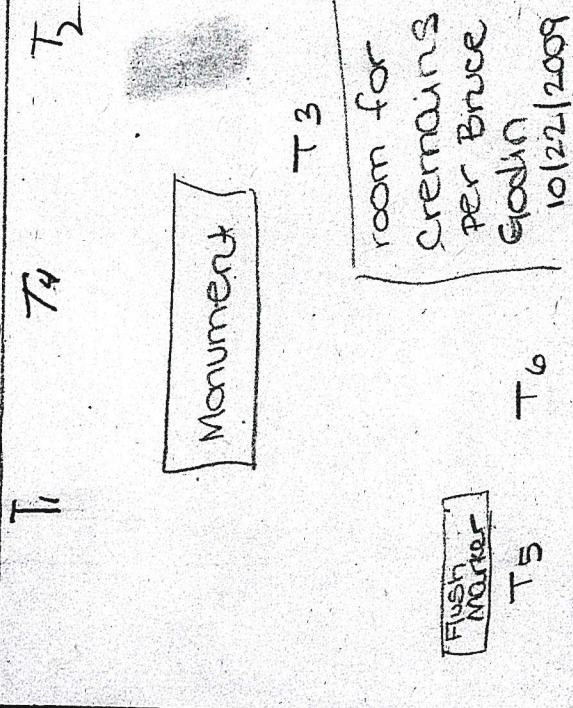 T1 T4 T2
Monument
T3
room for
Cremains
per Bruce
Godin
10/22/2009
Flush
Marker
T5 T6